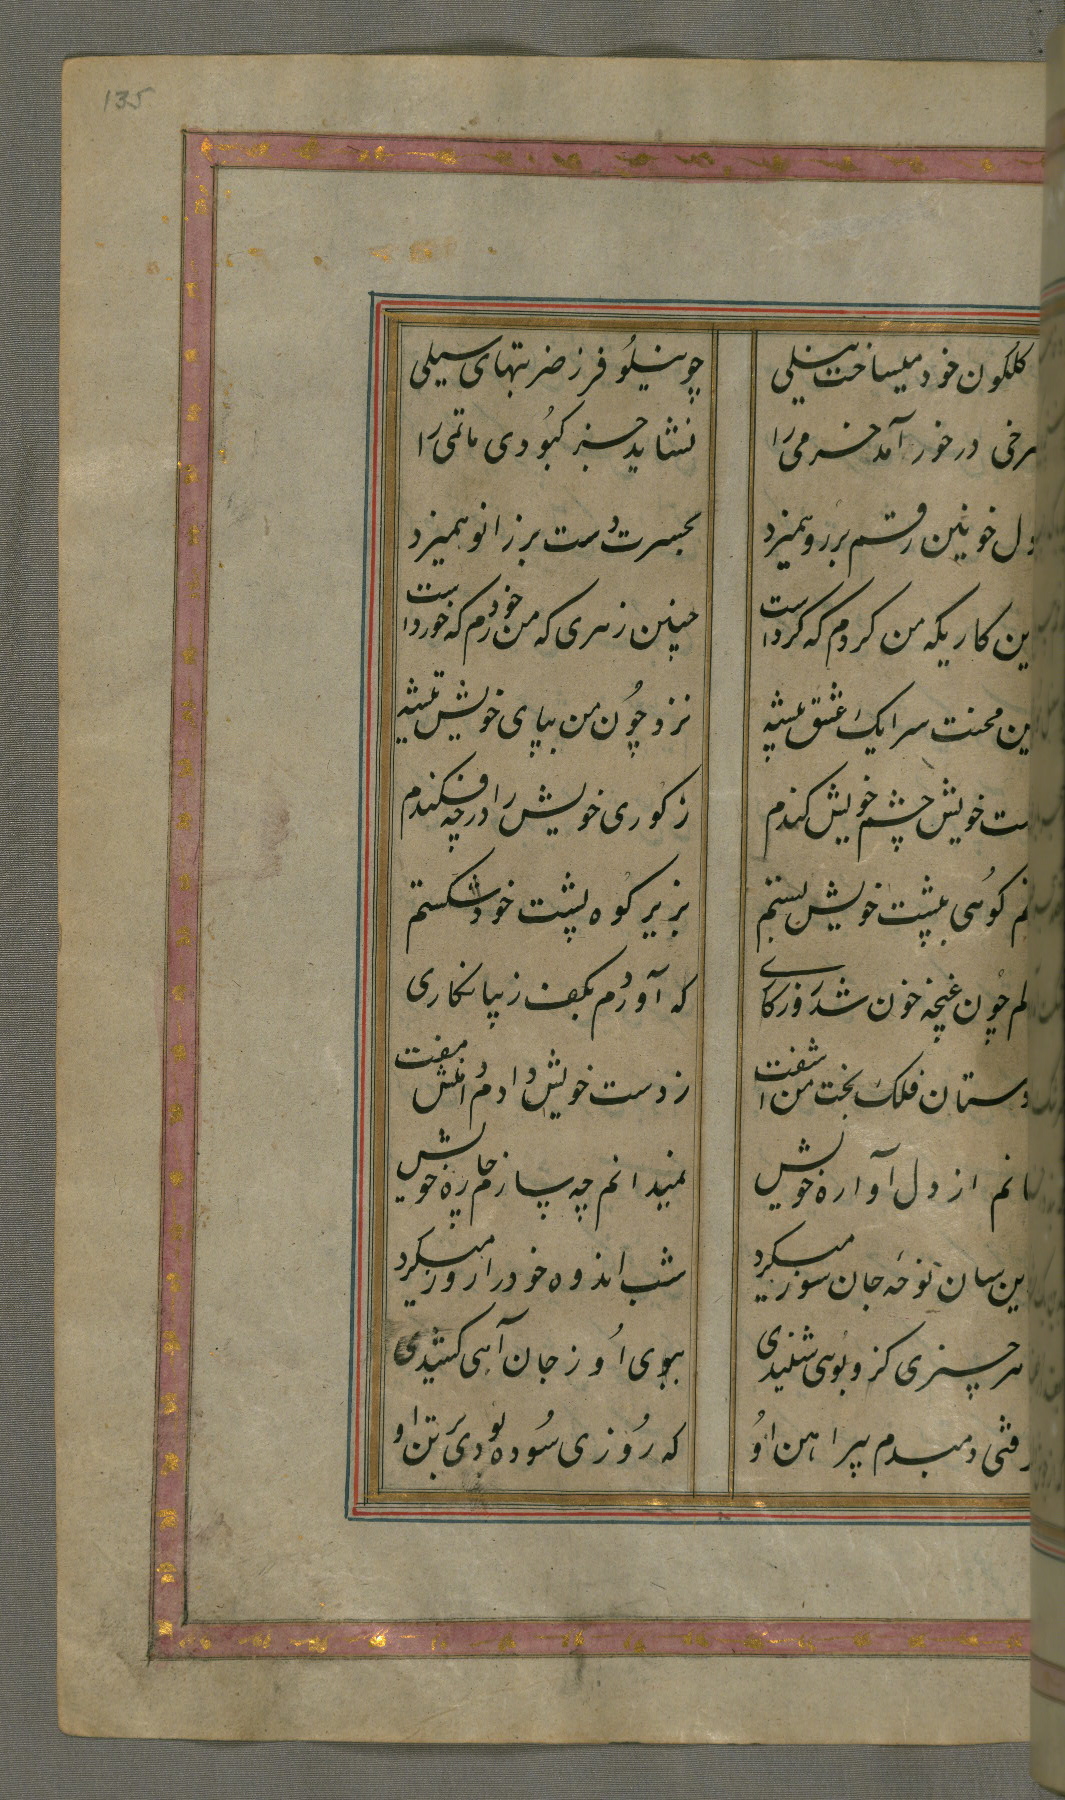 135
گلگون خود میساخت نیلی چو نیلوفر ز ضربتهای سیلی
سرخی در خور آمد خرمی را نشاید جز کبودی ماتمی را
دل خونین رقم بر رو همیزد بحسرت دست بر زانو همیزد
این کاریکه من کردم که کرداست چنین زهری که من خوردم که خورداست
این محنت سرا یک عشق پیشه نزد چون من بپای خویش تیشه
دست خویش چشم خویش کندم ز کوری خویش را در چه فکندم
کوهی بپشت خویش بستم بزیر کوه پشت خود شکستم
دلم چون غنچه خون شد روزگاری که آوردم بکف زیبا نگاری
دستان فلک بخت من آشفت ز دست خویش دادم دامنش مفت
از دل آواره خویش نمیدانم چه سازم چاره خویش
این سان نوحه جان سوز میکرد شب اندوه خود را روز میکرد
هر چیزی کز او بوی شنیدی ببوی او ز جان آهی کشیدی
گرفتی دمبدم پیراهن او که روزی سوده بودی بر تن او